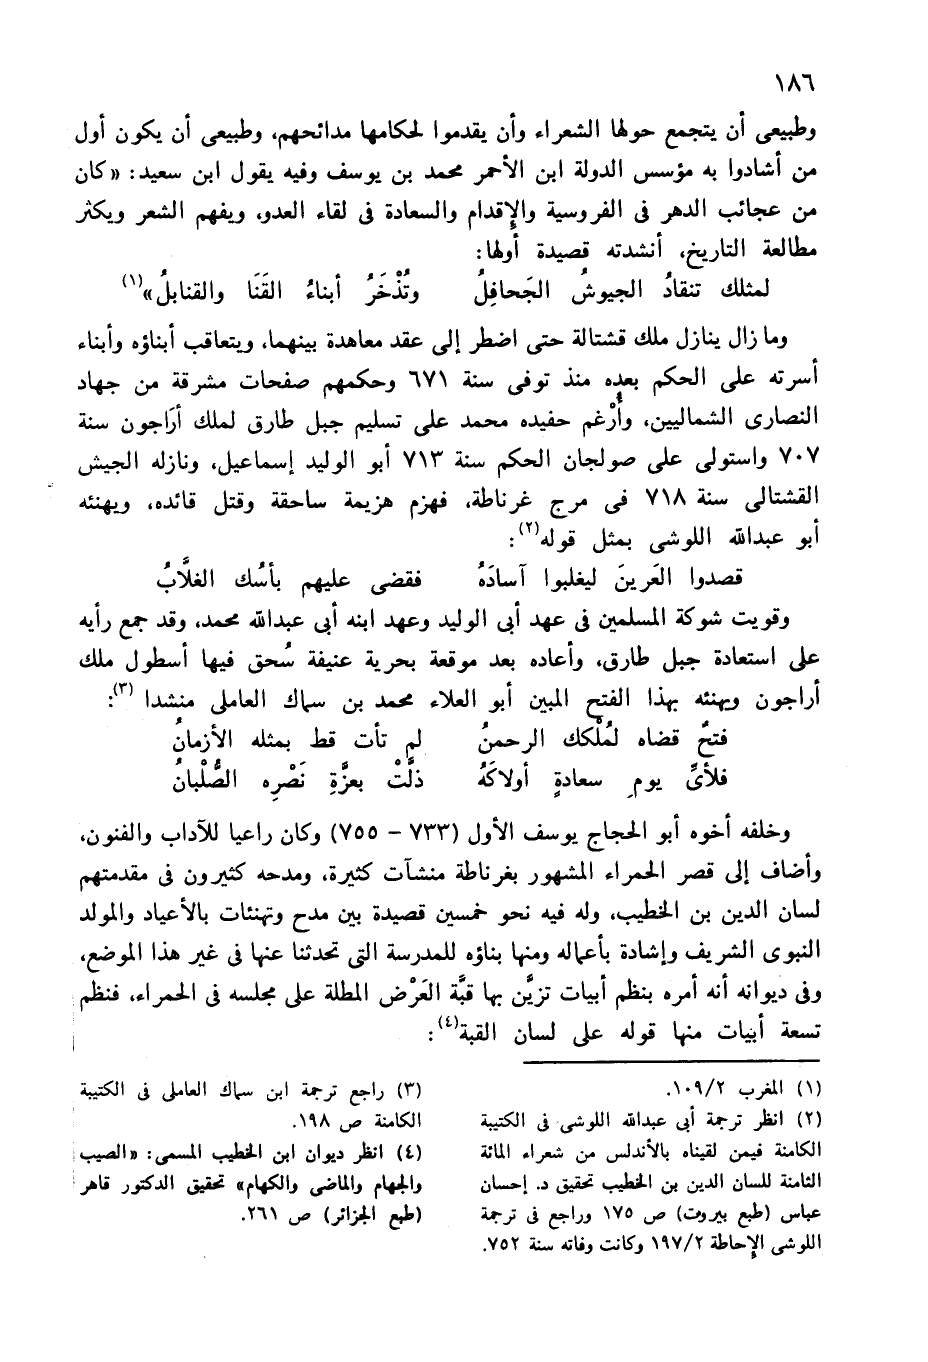 ١٨٦
وطبيعى أن يتجمع حولها الشعراء وأن يقدموا لحكامها مدائحهم، وطبيعى أن يكون أول
من أشادوا به مؤسس الدولة ابن الأحمر محمد بن يوسف وفيه يقول ابن سعيد: «كان
من عجائب الدهر فى الفروسية والإقدام والسعادة فى لقاء العدو، ويفهم الشعر ويكثر
مطالعة التاريخ، أنشدته قصيدة أولها:
لمثلك تنقادُ الجيوشُ الجَحافِلُ وتُذْخَرُ أبناءُ القَنَا والقنابلُ»(١)
وما زال ينازل ملك قشتالة حتى اضطر إلى عقد معاهدة بينهما، ويتعاقب أبناؤه وأبناء
أسرته على الحكم بعده منذ توفى سنة ٦٧١ وحكمهم صفحات مشرقة من جهاد
النصارى الشماليين، وأُرْغم حفيده محمد على تسليم جبل طارق لملك أراجون سنة
٧٠٧ واستولى على صولجان الحكم سنة ٧١٣ أبو الوليد إسماعيل، ونازله الجيش
القشتالى سنة ٧١٨ فى مرج غرناطة، فهزم هزيمة ساحقة وقتل قائده، ويهنئه
أبو عبدالله اللوشى بمثل قوله(٢):
قصدوا العَرينَ ليغلبوا آسادَهُ فقضى عليهم بأسُك الغلَّابُ
وقويت شوكة المسلمين فى عهد أبى الوليد وعهد ابنه أبى عبدالله محمد، وقد جمع رأيه
على استعادة جبل طارق، وأعاده بعد موقعة بحرية عنيفة سُحق فيها أسطول ملك
أراجون ويهنئه بهذا الفتح المبين أبو العلاء محمد بن سماك العاملى منشدا (٣):
فتحٌ قضاه لمُلْكك الرحمنُ لم تأت قط بمثله الأزمانُ
فلأىِّ يومِ سعادةٍ أولاكَهُ ذلَّتْ بعزَّةِ نَصْرِه الصُّلْبانُ
وخلفه أخوه أبو الحجاج يوسف الأول (٧٣٣ - ٧٥٥) وكان راعيا للآداب والفنون،
وأضاف إلى قصر الحمراء المشهور بغرناطة منشآت كثيرة، ومدحه كثيرون فى مقدمتهم
لسان الدين بن الخطيب، وله فيه نحو خمسين قصيدة بين مدح وتهنئات بالأعياد والمولد
النبوى الشريف وإشادة بأعماله ومنها بناؤه للمدرسة التى تحدثنا عنها فى غير هذا الموضع،
وفى ديوانه أنه أمره بنظم أبيات تزيَّن بها قبَّة العَرْض المطلة على مجلسه فى الحمراء، فنظم
تسعة أبيات منها قوله على لسان القبة(٤):
(١) المغرب ١٠٩/٢.
(٢) انظر ترجمة أبى عبدالله اللوشى فى الكتيبة
الكامنة فيمن لقيناه بالأندلس من شعراء المائة
الثامنة للسان الدين بن الخطيب تحقيق د. إحسان
عباس (طبع بيروت) ص ١٧٥ وراجع فى ترجمة
اللوشى الإحاطة ١٩٧/٢ وكانت وفاته سنة ٧٥٢.
(٣) راجع ترجمة ابن سماك العاملى فى الكتيبة
الكامنة ص ١٩٨.
(٤) انظر ديوان ابن الخطيب المسمى: «الصيب
والجهام والماضى والكهام» تحقيق الدكتور قاهر
(طبع الجزائر) ص ٢٦١.